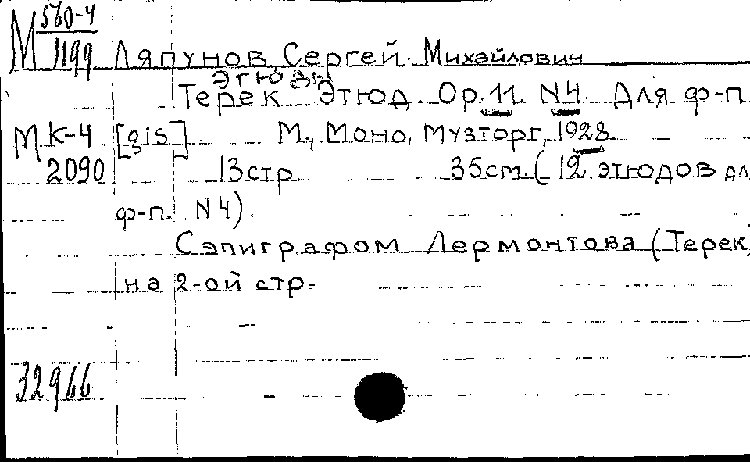 М 560-4
1199
Ляпунов Сергей Михайлович
Этюды
Терек Этюд Op. 11 N4 Для ф-п
М К-4 [gis] М., Моно, Музторг, 1928
2090 13стр 35cm. (12 этюдов дл
ф-п. N4).
С эпиграфом Лермонтова (Терек)
на 2-ой стр.
32966